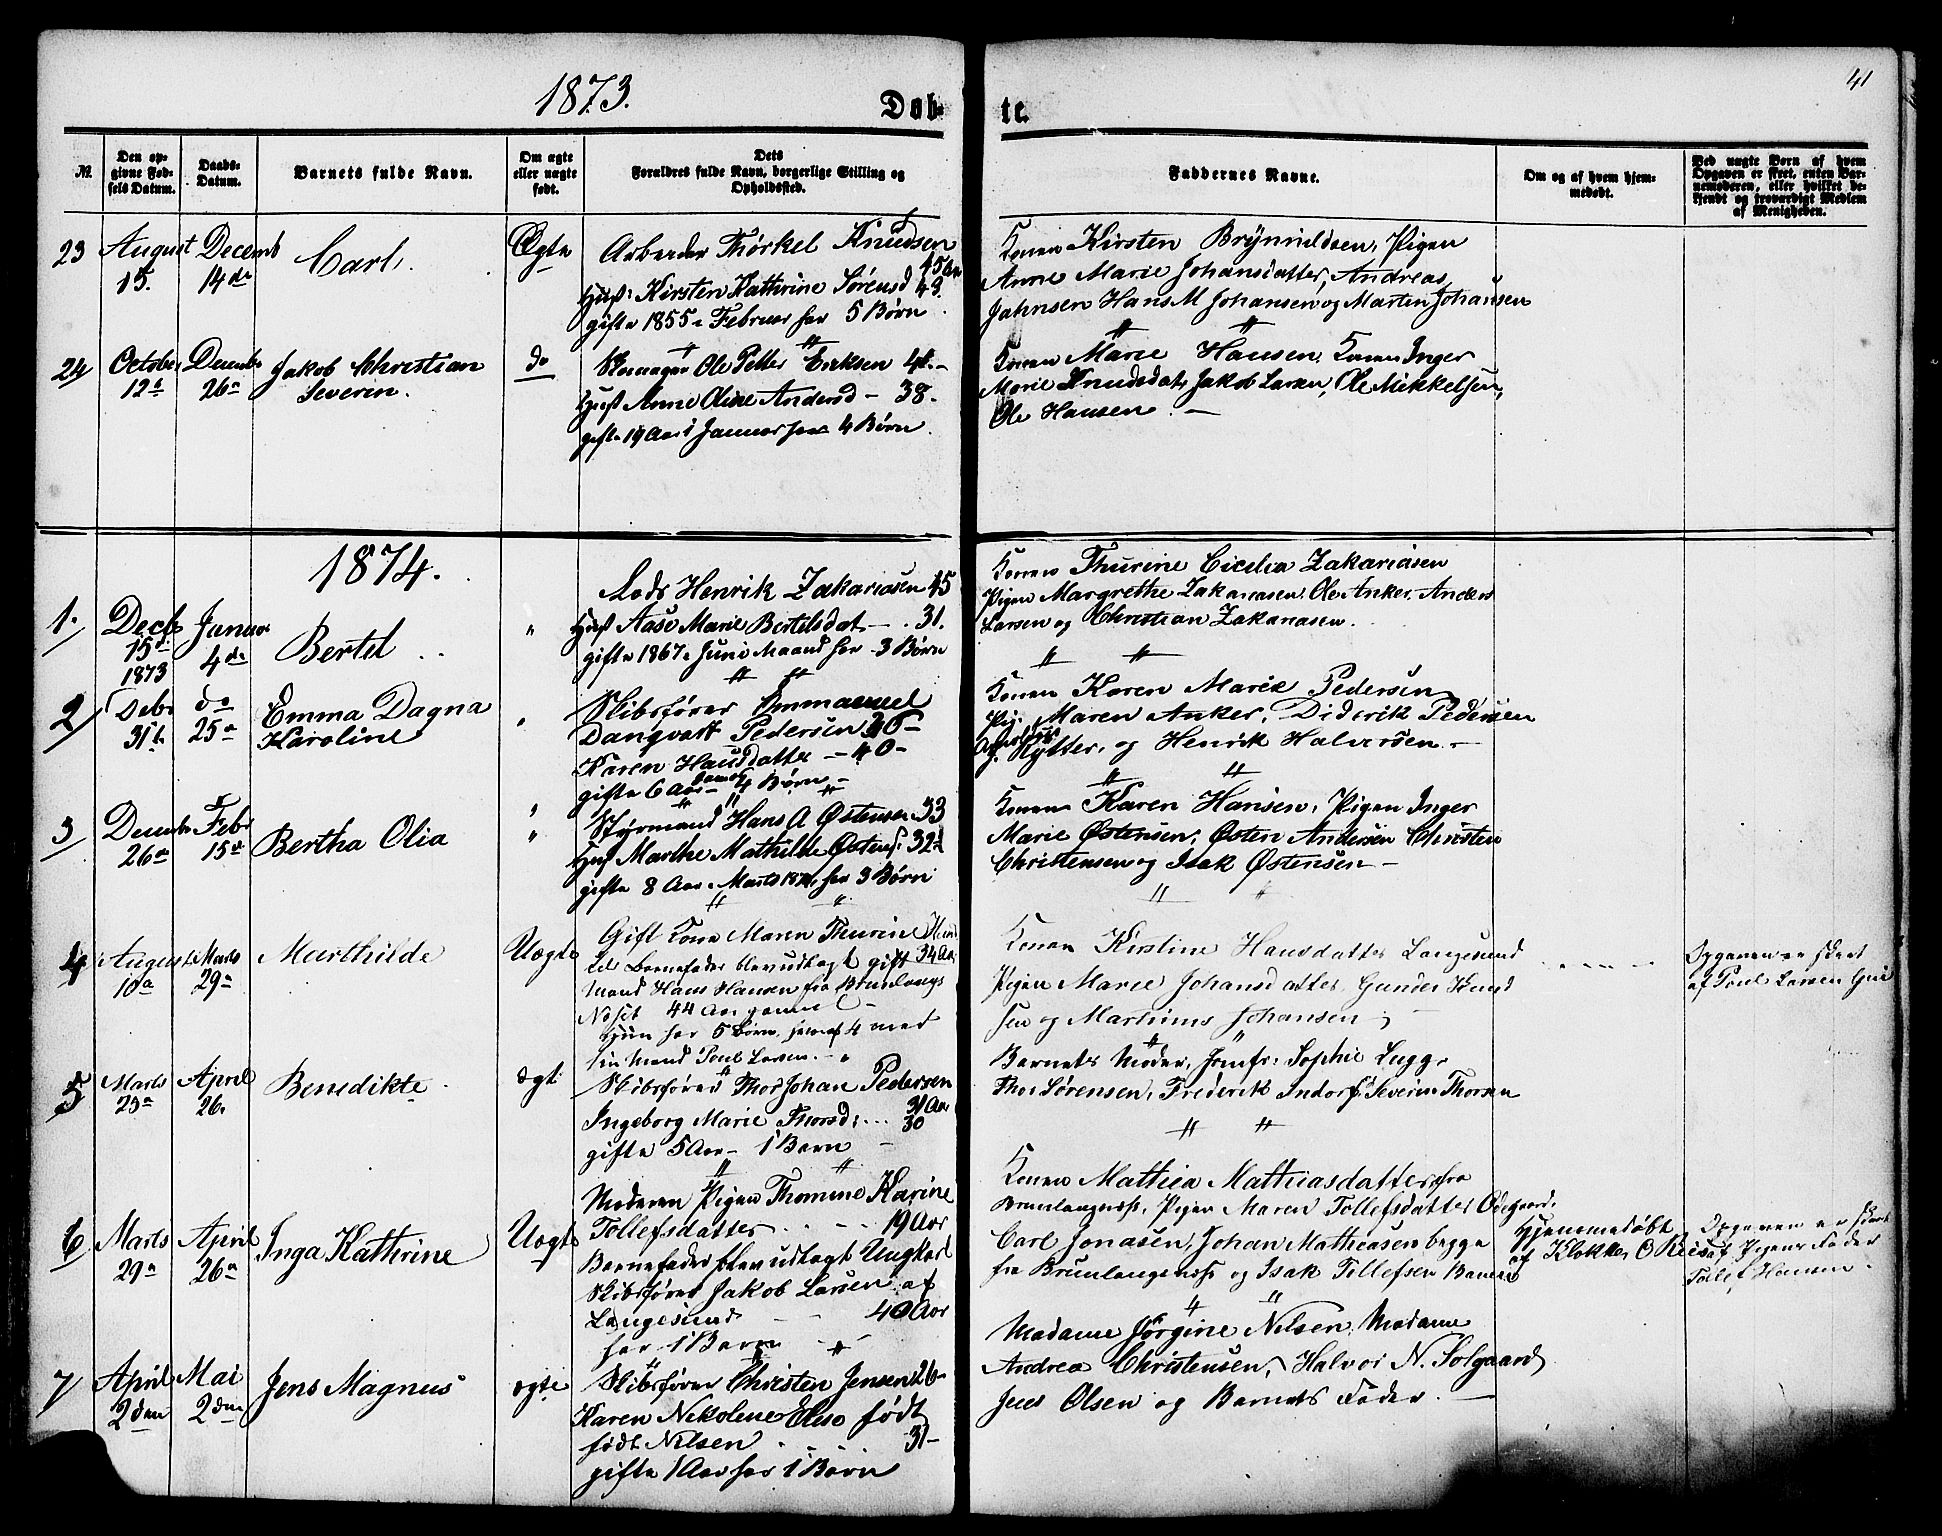 1873.
Døb-
te.
41
№
Den op-
givne Fød-
sels Datum.
Daabs-
Datum.
Barnets fulde Navn.
Om ægte
eller uægte
født.
Dets
Forældres fulde Navn, borgerlige Stilling og
Opholdssted.
Faddernes Navne.
Om og af hvem hjem-
medøbt.
Ved uægte Børn af hvem
Opgaven er skeet, enten Bar-
nemoderen, eller hvilket be-
kjendt og troværdigt Medlem
af Menigheden.
23
August
15.
Decemb
14de
Carl,
Ægte
Arbeider Thorkel Knudsen
45 Aar
Hust: Kirsten Kathrine Sørensd 43.
gifte 1855 i Februar har 5 Børn
Konen Kirsten Brynnildsen, Pigen
Anne Marie Johansdatter, Andreas
Jahnsen Hans M Johansen og Martin Johansen
24
October
12te
Decembr
26de
Jakob Christian
Severin.
do
Skomager Ole Petter Eriksen
Hust Anne Oline Andersd - 38.
gifte 19 Aar i Januar har 4 Børn.
Konen Marie Hansen, Konen Inger
Marie Knudsdat, Jakob Larsen, Ole Mikkelsen,
Ole Hansen. -
1874.
1.
Decb
15de
1873
Januar
4de
Bertel
"
Lods Henrik Zakariasen 45
Hust Aase Marie Bertelsdat - . 31.
gifte 1867 i Juni Maaned har 3 Børn
Konen Thurine Cicelia Zakariasen
Pigen Margrethe Zakariasen, Ole Anker, Anders
Larsen og Christian Zakariasen.
2
Debr
31te
do
25de
Emma Dagna
Karoline
"
Skibsfører Emmanuel
Danqvart Pedersen
Karen Hansdatter - 40 -
gifte 6 Aar - 4 Børn -
Konen Karen Marie Pedersen
Pig. Maren Anker, Diderik Pedersen
Rytter, og Henrik Halversen. -
3
Decembr
26de
Febr
15de
Bertha Olia
"
Styrmand Hans A Østensen 33
Hust Marthe Mathilde Østens. 32
gifte 8 Aar i Marts 1874 har 3 Børn
Konen Karen Hansen, Pigen Inger
Marie Østensen, Østen Andersen Christen
Christensen og Isak Østensen -
4
August
10de
Marts
29de
Marthilde
Uægte
Gift Kone Maren Thurine
34 Aar
Barnefader blev udlagt gift
Mand Hans Hansen fra Brunlangs
Næset 44 Aar gamel
Hun har 5 Børn, 4 med
sin Mand Poul Larsen. -
Konen Kirstine Hansdatter Langesund
Pigen Marie Johansdatter, Gunder Knud
sen og Martinius Johansen -
Opgaven er skeet
af Poul Larsen
5
Marts
25de
April
26.
Benedikte
ægt:
Skibsfører Thor Johan Pedersen
31 Aar
Ingeborg Marie Thorsd: ... 30
gifte 5 Aar - 1 Barn -
Barnets Moder, Jomfr: Sophie Lugg,
Thor Sørensen, Frederik Indorf, Severin Thorsen
6
Marts
29de
April
26de
Inga Kathrine
Uægt
Moderen Pigen Thomine Karine
Tollefsdatter . . . 19 Aar
Barnefader blev udlagt Ungkarl
Skibsfører Jakob Larsen af
Langesund - - 40 Aar
har 1 Barn
Konen Mathea Mathiasdatter fra
Brunlangnæss, Pigen Maren Tollefsdatter Ødegaard,
Carl Jonasen, Johan Mathiasen begge
fra Brunlangenæss og Isak Tollefsen
Hjemmedøbt
af Klokker O Riis
Opgaven er skeet
af Pigens Fader
Tollef Hansen.
7
April
2den
Mai
2den
Jens Magnus
ægte
Skibsfører Christen Jensen 26-
Karen Nikoline Elise født
født Nilsen . . 31-
gifte 1 Aar har 1 Børn
Madame Jørgine Nilsen, Madame
Andrea Christensen, Halvor N. Solgaard
Jens Olsen og Barnets Fader. -